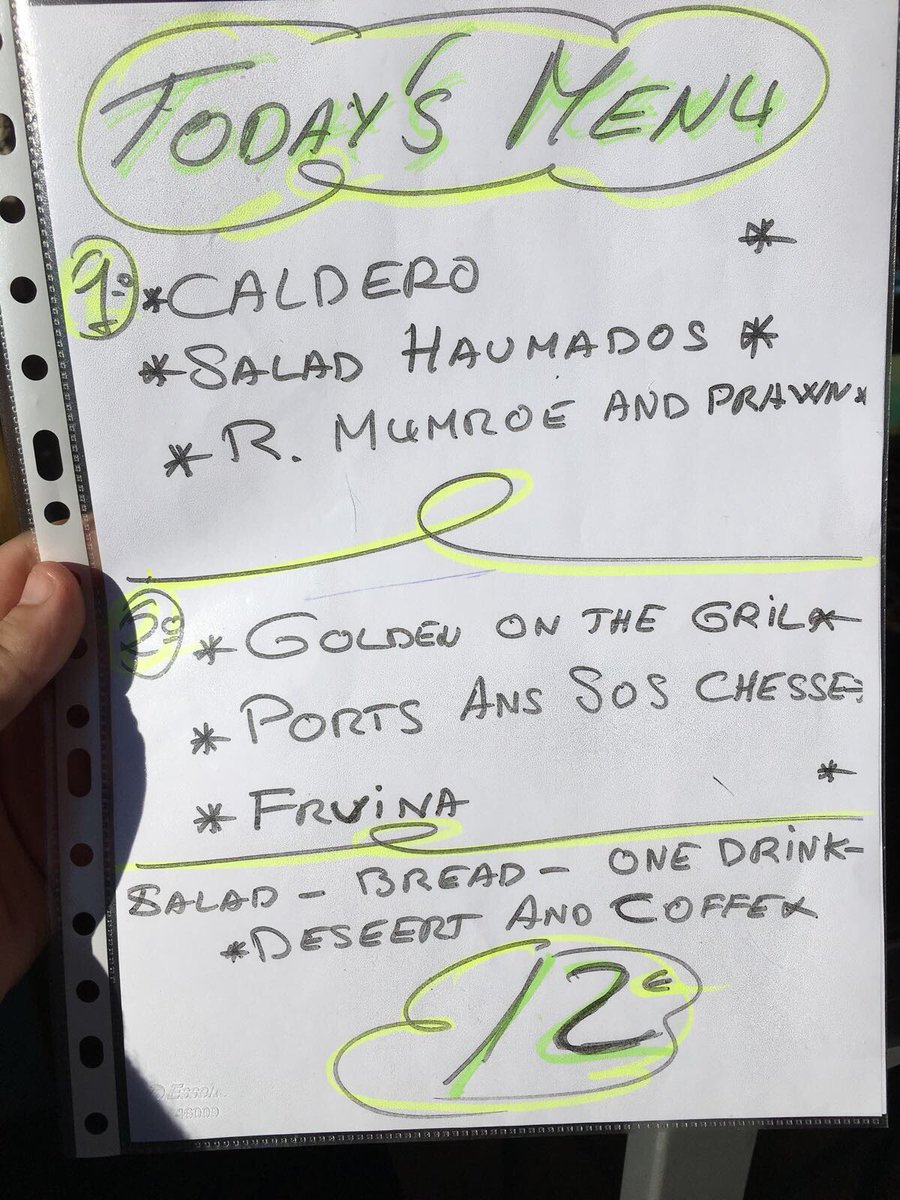 TODAY'S MENU
1º *CALDERO *
*SALAD HAUMADOS *
*R. MUMROE AND PRAWN*
2º *GOLDEN ON THE GRIL*
*PORTS ANS SOS CHESSE*
*FRUINA *
SALAD - BREAD - ONE DRINK-
*DESEERT AND COFFE*
12€
Esselte
48009